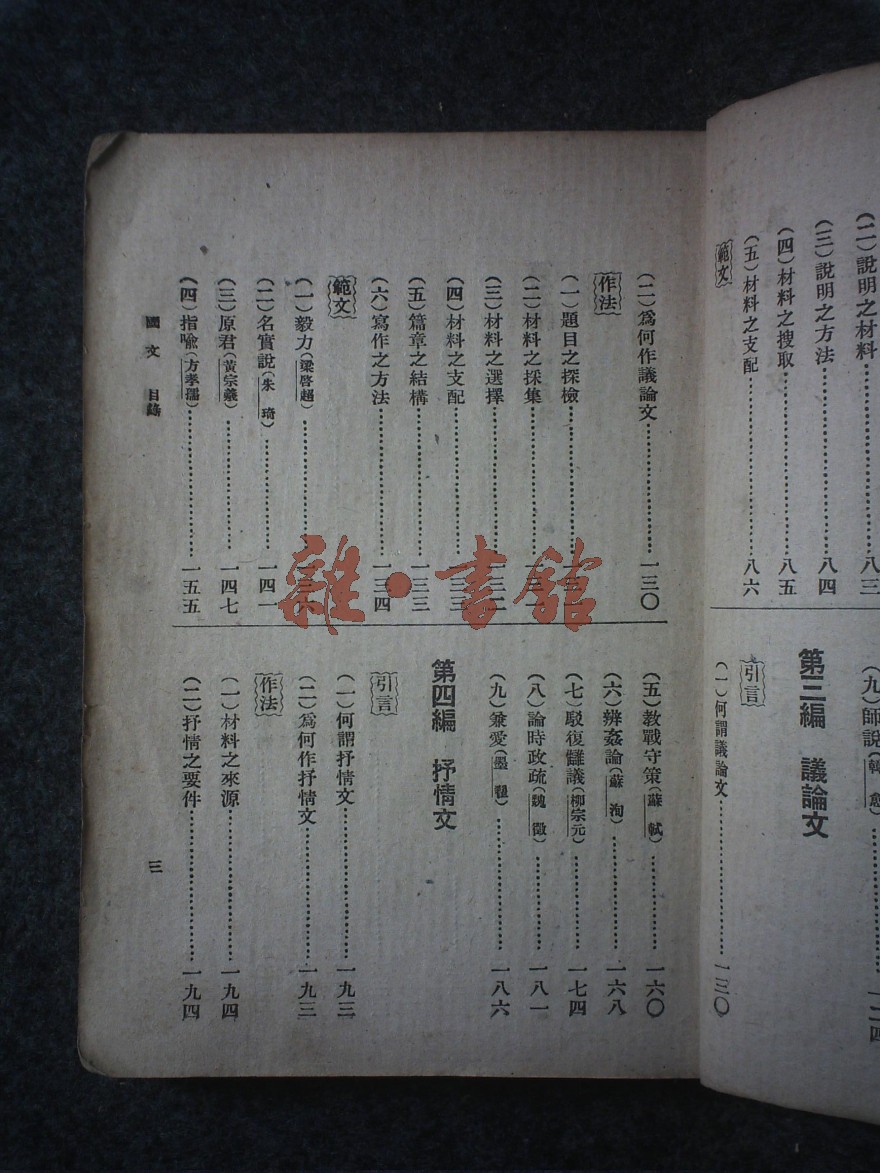 (二)說明之材料……八三
(三)說明之方法……八四
(四)材料之搜取……八五
(五)材料之支配……八六
範文
(九)師說(韓愈)……
第三編 議論文
引言
(一)何謂議論文……一三〇
(二)爲何作議論文……一三〇
作法
(一)題目之探檢……
(二)材料之採集……
(三)材料之選擇……
(四)材料之支配……
(五)篇章之結構……一三三
(六)寫作之方法……一三四
範文
(一)毅力(梁啓超)……
(二)名實說(朱琦)……一四一
(三)原君(黃宗羲)……一四七
(四)指喩(方孝孺)……一五五
(五)敎戰守策(蘇軾)……一六〇
(六)辨姦論(蘇洵)……一六八
(七)駁復讎議(柳宗元)……一七四
(八)論時政疏(魏徵)……一八一
(九)兼愛(墨翟)……一八六
第四編 抒情文
引言
(一)何謂抒情文……一九三
(二)爲何作抒情文……一九三
作法
(一)材料之來源……一九四
(二)抒情之要件……一九四
國文 目錄
三
雜·書館